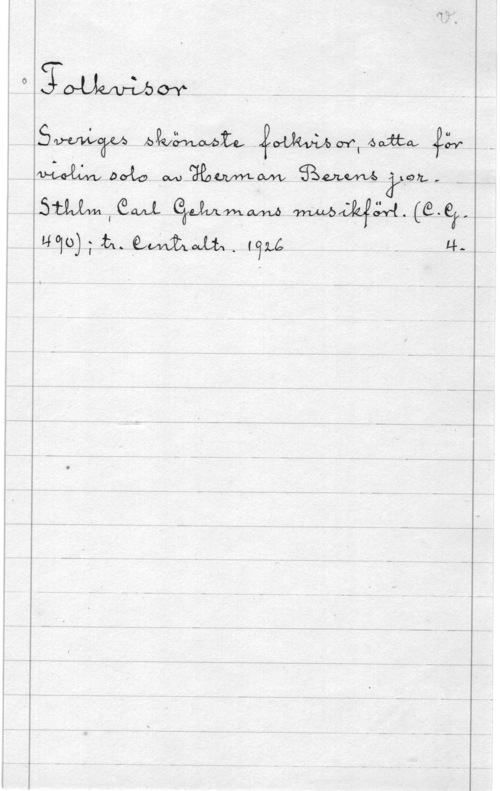 v.
Folkvisor
Sveriges skönaste folkvisor, satta för
violin solo av Herman Berens j:or.
Sthlm, Carl Gehrmans musikförl. (C.G.
490); tr. Centraltr. 1926 4.